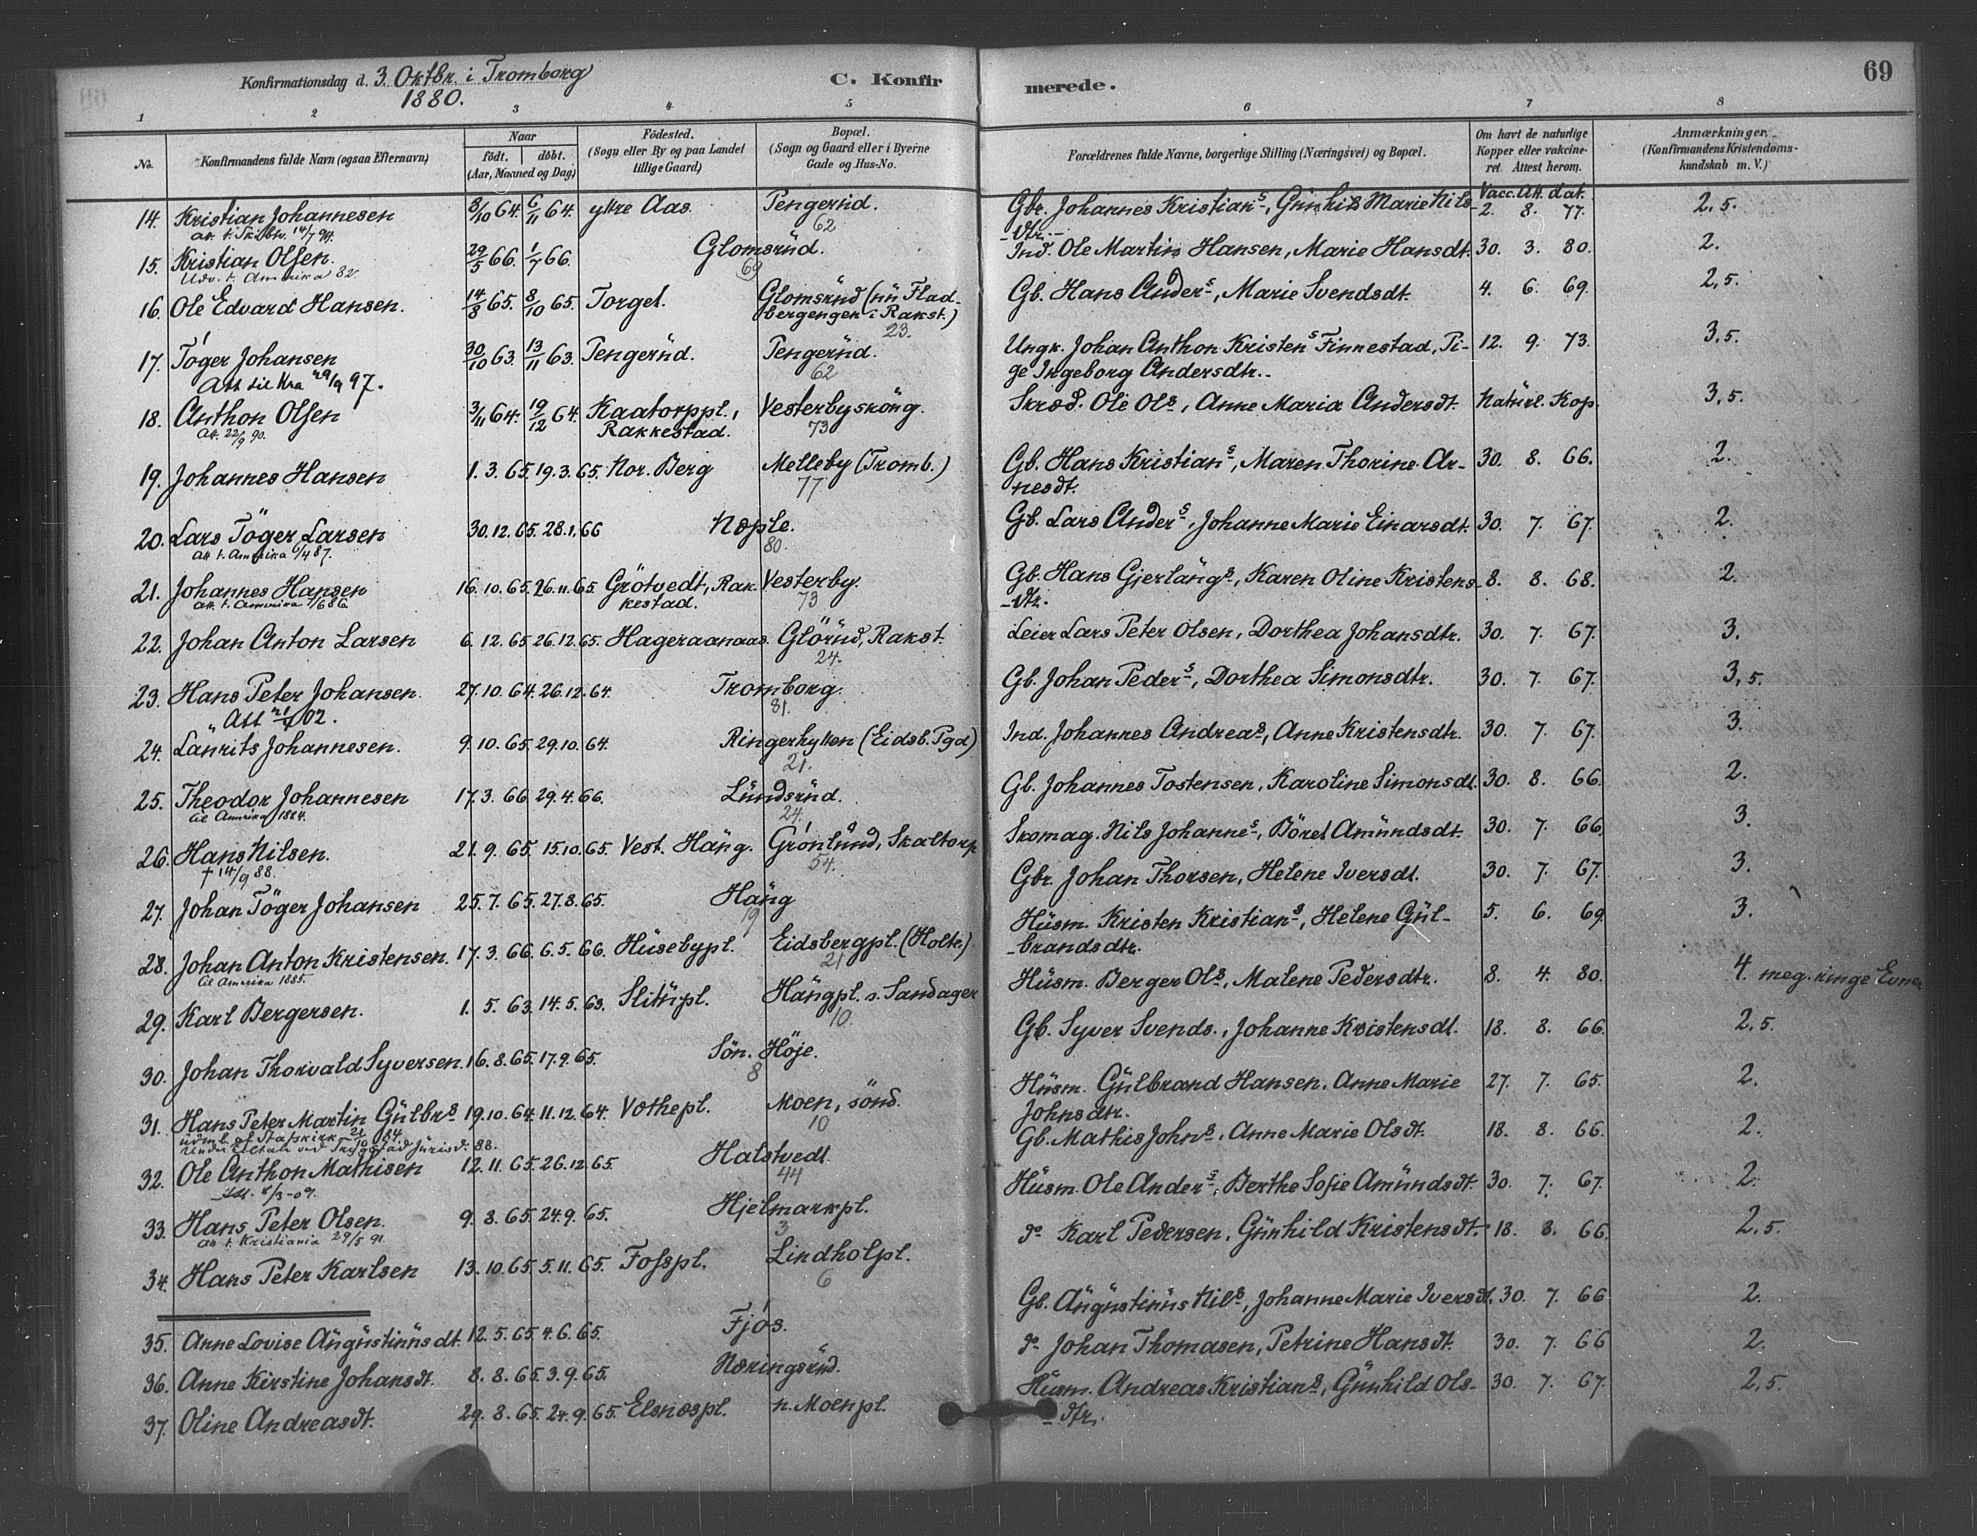 Konfirmationsdag d. 3. Oktbr. i Tromborg
1880.
C. Konfir
merede.
69
1 2 3 4 5 6 7 8
No.
Konfirmandens fulde Navn (ogsaa Efternavn)
Naar
födt. döbt.
(Aar, Maaned og Dag)
Födested.
(Sogn eller By og paa Landet
tillige Gaard)
Bopæl.
(Sogn og Gaard eller i Byerne
Gade og Hus-No.
Forældrenes fulde Navne, borgerlige Stilling (Næringsvei) og Bopæl.
Om havt de naturlige
Kopper eller vakcine-
ret. Attest herom.
Anmærkninger.
(Konfirmandens Kristendoms-
kundskab m. V.)
Vacc. Att. dat.
14. Kristian Johannesen 8/10 64. 6/11 64. yttre Aas. Pengerüd. Gbr. Johannes Kristians, Günhild Marie Nils- 2. 8. 77. 2,5.
62
-dtr.-
15. Kristian Olsen. 29/5 66. 1/7 66. Glomsrüd. Ind. Ole Martin Hansen, Marie Hansdt. 30. 3. 80. 2.
Udv. t. Amerika 82. 69
16. Ole Edvard Hansen. 14/8 65. 8/10 65. Torget. Glomsrüd (nü Flad- Gb. Hans Anders, Marie Svendsdt. 4. 6. 69. 2,5.
bergengen i Rakst.)
23.
17. Töger Johansen 30/10 63. 13/11 63. Pengerüd. Pengerüd. Ungk. Johan Anthon Kristens Finnestad, Pi- 12. 9. 73. 3,5.
Att til Kra 29/9 97. 62 ge Ingeborg Andersdtr.
18. Anthon Olsen 3/11 64. 19/12 64. Kaatorppl., Vesterbysköng. Skræd. Ole Ols, Anne Maria Andersdt. Natürl. Kop. 3,5.
Att. 22/9 90. Rakkestad. 73
19. Johannes Hansen 1. 3. 65. 19. 3. 65. Nor. Berg Melleby (Tromb.) Gb. Hans Kristians, Maren Thorine Ar- 30. 8. 66. 2.
77 nesdt.
20. Lars Töger Larsen 30. 12. 65. 28. 1. 66 Næple. Gb. Lars Anders, Johanne Marie Einarsdt. 30. 7. 67. 2.
Att. t. Amerika 6/4 87. 80.
21. Johannes Hansen 16. 10. 65. 26. 11. 65 Grötvedt, Rak- Vesterby. Gb. Hans Gjerlaügs, Karen Oline Kristens- 8. 8. 68. 2.
Att. t. Amerika 7/6 86. kestad. 73 -dtr.
22. Johan Anton Larsen 6. 12. 65. 26. 12. 65. Hageraanaas. Glörüd, Rakst. Leier Lars Peter Olsen, Dorthea Johansdtr. 30. 7. 67. 3.
24.
23. Hans Peter Johansen. 27. 10. 64. 26. 12. 64. Tromborg. Gb. Johan Peders, Dorthea Simonsdtr. 30. 7. 67. 3,5.
81.
24. Laürits Johannesen. 9. 10. 65. 29. 10. 64. Ringerhytten (Eidsb. Pgd) Ind. Johannes Andreas, Anne Kristensdtr. 30. 7. 67. 3.
21.
25. Theodor Johannesen 17. 3. 66. 29. 4. 66. Lündsrüd. Gb. Johannes Tostensen, Karoline Simonsdt. 30. 8. 66. 2.
til Amerika 1884. 24.
26. Hans Nilsen. 21. 9. 65. 15. 10. 65. Vest. Haüg. Grönlünd, Skaltorp Skomag. Nils Johannes, Böret Amündsdt. 30. 7. 66. 3.
† 14/9 88. 54.
27. Johan Töger Johansen 25. 7. 65. 27. 8. 65. Haüg Gbr. Johan Thorsen, Helene Iversdt. 30. 7. 67. 3.
19
28. Johan Anton Kristensen. 17. 3. 66. 6. 5. 66. Hüsebypl. Eidsbergpl. (Holte.) Hüsm. Kristen Kristians, Helene Gül- 5. 6. 69 3.
til Amerika 1885. 21 -brandsdtr.
29. Karl Bergersen. 1. 5. 63. 14. 5. 63. Slittüpl. Haügpl. s. Sandager Hüsm. Berger Ols, Malene Pedersdtr. 8. 4. 80. 4. meg. ringe Evner
10.
30. Johan Thorvald Syversen. 16. 8. 65. 17. 9. 65. Sön. Höje. Gb. Syver Svends., Johanne Kristensdt. 18. 8. 66. 2,5.
8
31. Hans Peter Martin Gülbrs 19. 10. 64. 11. 12. 64. Vothepl. Moen, sönd. Hüsm. Gülbrand Hansen, Anne Marie 27. 7. 65. 2.
10 Johnsdtr.
32. Ole Anthon Mathisen 12. 11. 65. 26. 12. 65. Halstvedt. Gb. Mathis Johns, Anne Marie Olsdt. 18. 8. 66. 2.
44
33. Hans Peter Olsen. 9. 8. 65. 24. 9. 65. Hjelmarkpl. Hüsm. Ole Anders, Berthe Sofie Amündsdt. 30. 7. 67. 2.
Att t. Kristiania 29/5 91. 3
34. Hans Peter Karlsen 13. 10. 65. 5. 11. 65. Fosspl. Lindholpl. do Karl Pedersen, Günhild Kristensdt. 18. 8. 66. 2,5.
6
35. Anne Lovise Aügüstinüsdt. 12. 5. 65. 4. 6. 65. Fjös. Gb. Aügüstinüs Nils, Johanne Marie Iversdt. 30. 7. 66 2.
36. Anne Kirstine Johansdt. 8. 8. 65. 3. 9. 65. Næringsrüd. do Johan Thomasen, Petrine Hansdt. 30. 7. 66 2.
37. Oline Andreasdt. 29. 8. 65. 24. 9. 65. Elsnæspl. n. Moenpl. Hüsm. Andreas Kristians, Günhild Ols- 30. 7. 67. 2,5.
-dtr.